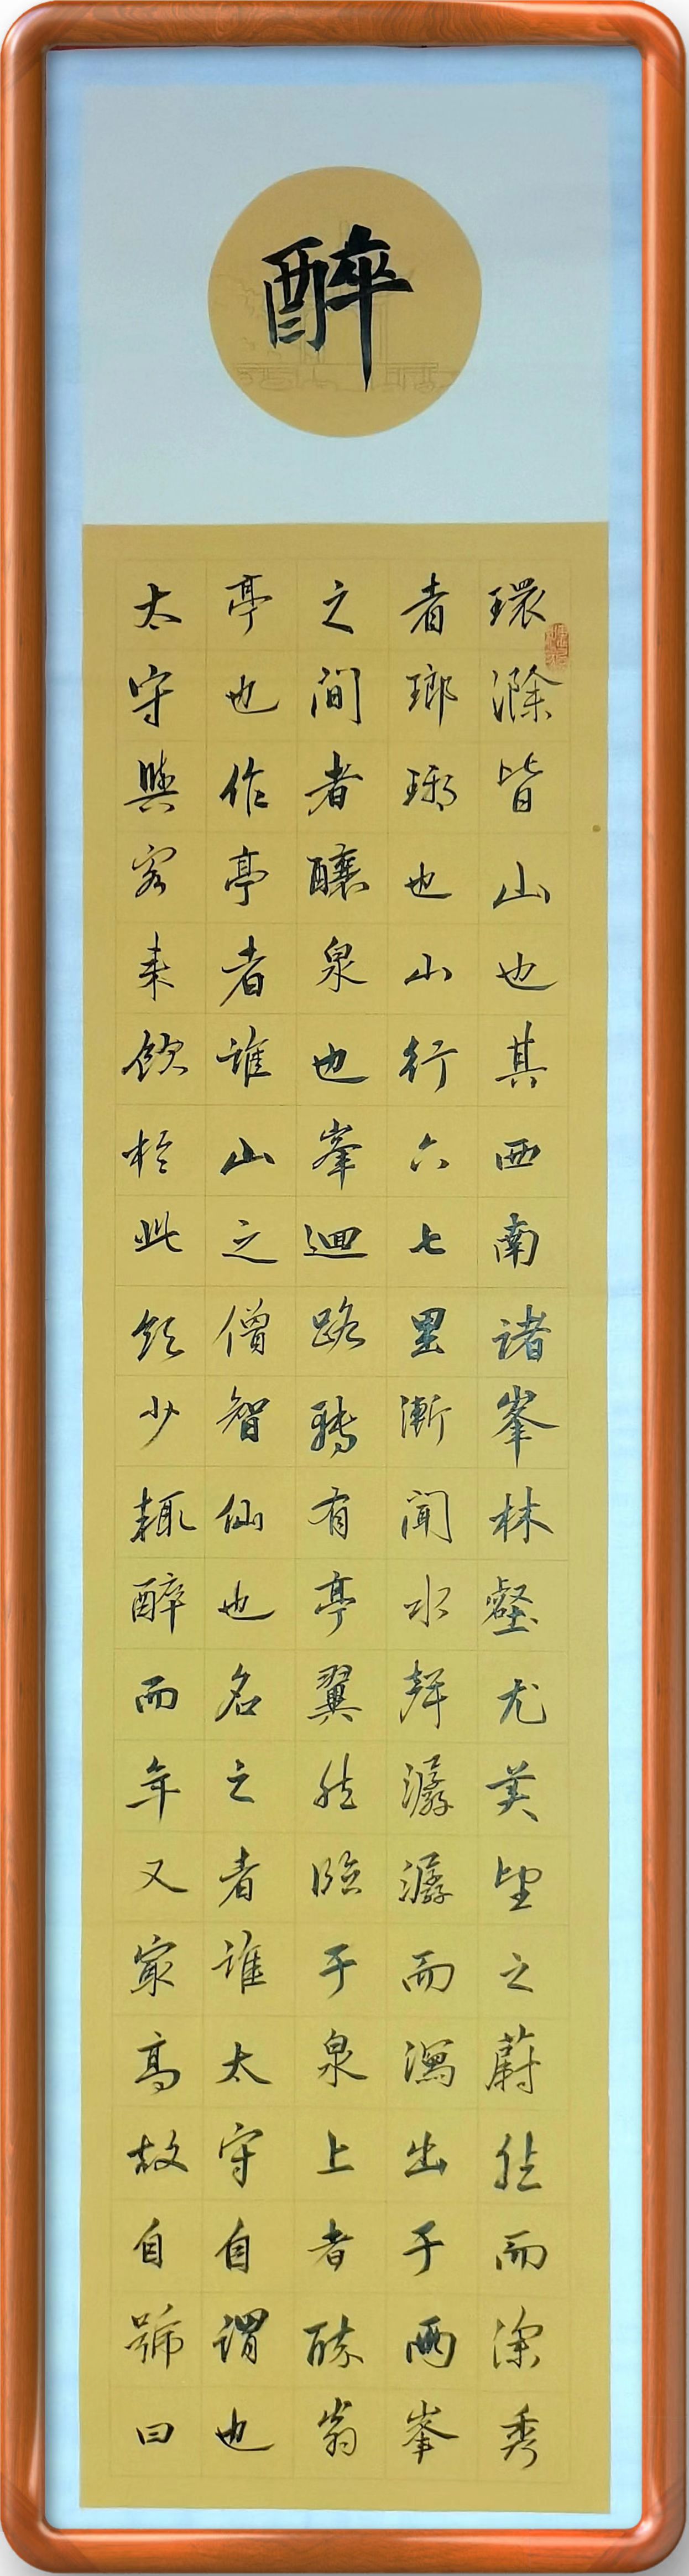 醉
環滁皆山也其西南諸峯林壑尤美望之蔚然而深秀
者瑯琊也山行六七里漸聞水聲潺潺而瀉出于兩峯
之間者釀泉也峯迴路轉有亭翼然臨于泉上者醉翁
亭也作亭者誰山之僧智仙也名之者誰太守自謂也
太守與客来飲於此飲少輒醉而年又最高故自號曰